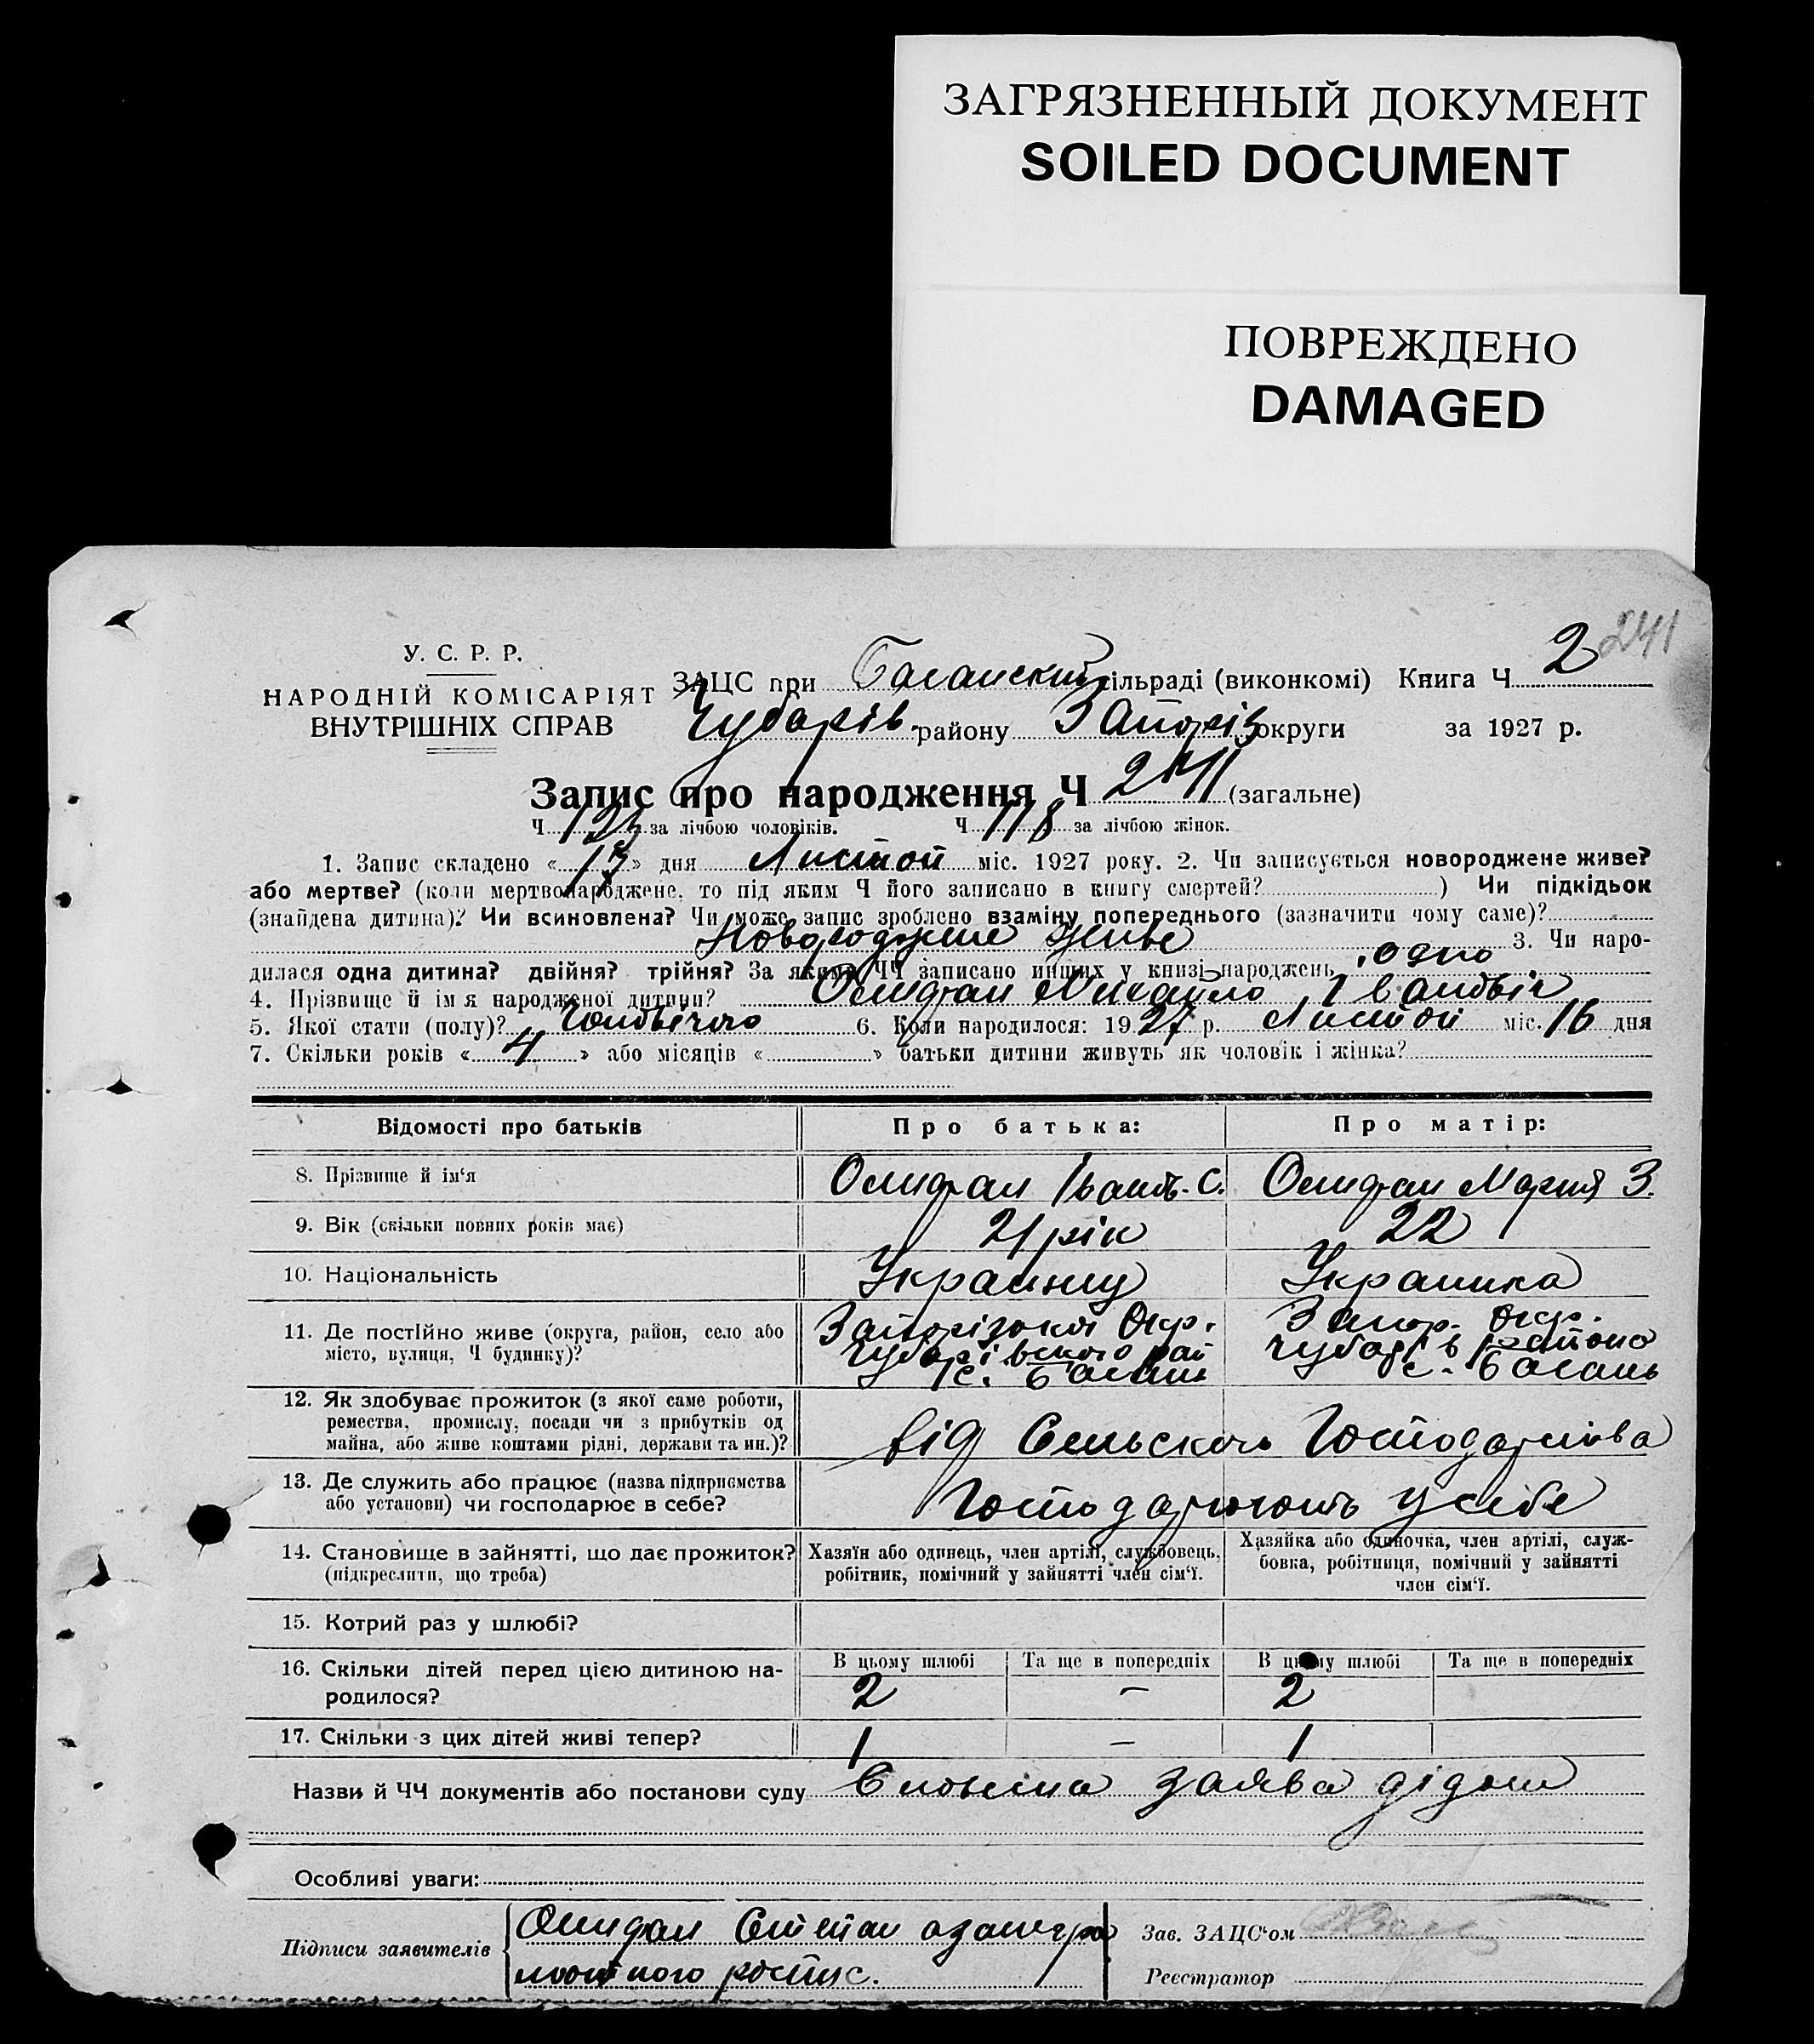 ЗАГРЯЗНЕННЫЙ ДОКУМЕНТ
SOILED DOCUMENT
ПОВРЕЖДЕНО
DAMAGED
241
У. С. Р. Р.
НАРОДНІЙ КОМІСАРІЯТ
ВНУТРІШНІХ СПРАВ
ЗАЦС при Басанський сільраді (виконкомі) Книга Ч 2
Чубарів району Запоріз округи за 1927 р.
Запис про народження Ч 241 (загальне)
Ч 123 за лічбою чоловіків. Ч 118 за лічбою жінок.
1. Запис складено « » дня Листоп міс. 1927 року. 2. Чи записується новороджене живе?
або мертве? (коли мертвонароджене, то під яким Ч його записано в книгу смертей? ) Чи підкідьок
(знайдена дитина)? Чи всиновлена? Чи може запис зроблено взаміну попереднього (зазначити чому саме)?
Новороджене живе 3. Чи наро-
дилася одна дитина? двійня? трійня? За якими ЧЧ записано инших у книзі народжень одно
4. Прізвище й ім'я народженої дитини? Михайло Івановіч
5. Якої стати (полу)? Чоловічого 6. Коли народилося: 1927 р. Листоп міс. 16 дня
7. Скільки років « 4 » або місяців « » батьки дитини живуть як чоловік і жінка?
Відомості про батьків Про батька: Про матір:
8. Прізвище й ім'я Іван С. Мария З.
9. Вік (скільки повних років має) 21 рік 22
10. Національність Украинец Украинка
11. Де постійно живе (округа, район, село або Запорізької Окр. Запор. Окр.
місто, вулиця, Ч будинку)? Чубарівского рай Чубарів району
с. Басань с. Басань
12. Як здобуває прожиток (з якої саме роботи,
ремества, промислу, посади чи з прибутків од
майна, або живе коштами рідні, держави та ин.)? від Сельского Господарства
13. Де служить або працює (назва підприємства
або установи) чи господарює в себе? Господарюють у себе
14. Становище в зайнятті, що дає прожиток? Хазяїн або одинець, член артілі, службовець, Хазяйка або одиночка, член артілі, служ-
(підкреслити, що треба) робітник, помічний у зайнятті член сім'ї. бовка, робітниця, помічний у зайнятті
член сім'ї.
15. Котрий раз у шлюбі?
16. Скільки дітей перед цією дитиною на- В цьому шлюбі Та ще в попередніх В цьому шлюбі Та ще в попередніх
родилося? 2 – 2
17. Скільки з цих дітей живі тепер? 1 – 1
Назви й ЧЧ документів або постанови суду Словесна заява дідом
Особливі уваги:
Підписи заявителів Степан Зав. ЗАЦС'ом
роспис. Реєстратор